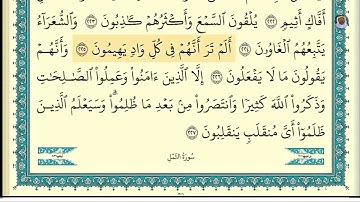 أَفَّاكٍ أَثِيمٍ ﴿٢٢٢﴾ يُلْقُونَ ٱلسَّمْعَ وَأَكْثَرُهُمْ كَـٰذِبُونَ ﴿٢٢٣﴾ وَٱلشُّعَرَآءُ
يَتَّبِعُهُمُ ٱلْغَاوُۥنَ ﴿٢٢٤﴾ أَلَمْ تَرَ أَنَّهُمْ فِى كُلِّ وَادٍ يَهِيمُونَ ﴿٢٢٥﴾ وَأَنَّهُمْ
يَقُولُونَ مَا لَا يَفْعَلُونَ ﴿٢٢٦﴾ إِلَّا ٱلَّذِينَ ءَامَنُوا۟ وَعَمِلُوا۟ ٱلصَّـٰلِحَـٰتِ
وَذَكَرُوا۟ ٱللَّهَ كَثِيرًا وَٱنتَصَرُوا۟ مِنۢ بَعْدِ مَا ظُلِمُوا۟ ۗ وَسَيَعْلَمُ ٱلَّذِينَ
ظَلَمُوٓا۟ أَىَّ مُنقَلَبٍ يَنقَلِبُونَ ﴿٢٢٧﴾
سُورَةُ النَّمْلِ